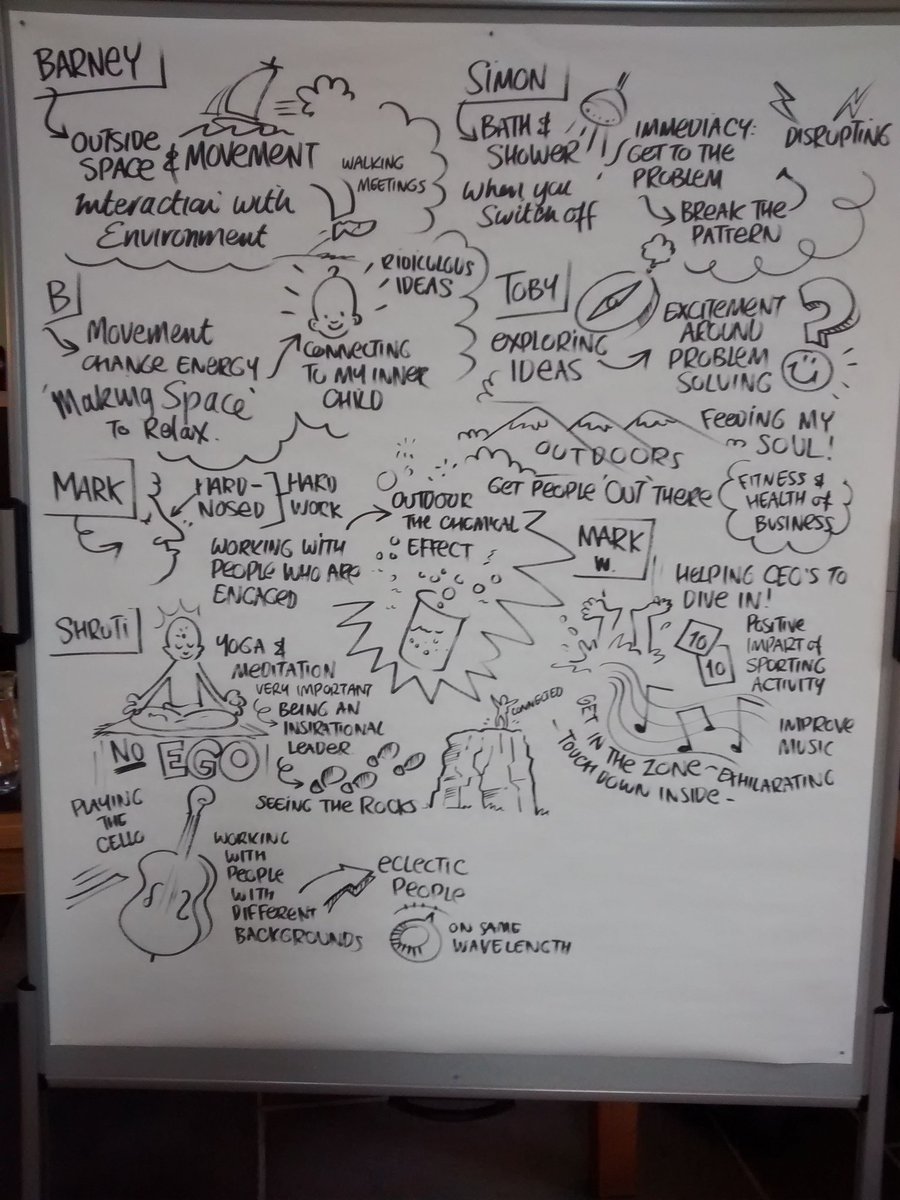 BARNEY
OUTSIDE
SPACE & MOVEMENT
WALKING
MEETINGS
Interaction with
Environment
SIMON
BATH &
SHOWER
When you
Switch off
IMMEDIACY:
GET TO THE
PROBLEM
BREAK THE
PATTERN
DISRUPTING
B
Movement
CHANGE ENERGY
'Making Space'
To Relax.
RIDICULOUS
IDEAS
CONNECTING
TO MY INNER
CHILD
TOBY
EXPLORING
IDEAS
EXCITEMENT
AROUND
PROBLEM
SOLVING
?
OUTDOORS
FEEDING MY
SOUL!
GET PEOPLE 'OUT' THERE
FITNESS &
HEALTH of
BUSINESS
MARK
HARD-
NOSED
HARD
WORK
WORKING WITH
PEOPLE WHO ARE
ENGAGED
OUTDOOR
THE CHEMICAL
EFFECT
MARK
W.
HELPING CEO'S TO
DIVE IN!
10
10
POSITIVE
IMPART of
SPORTING
ACTIVITY
GET IN THE ZONE - EXHILARATING
- TOUCH DOWN INSIDE -
IMPROVE
MUSIC
SHRUTI
YOGA &
MEDITATION
VERY IMPORTANT
BEING AN
INSIRATIONAL
LEADER
NO EGO
SEEING THE ROCKS
CONNECTED
PLAYING
THE
CELLO
WORKING
WITH
PEOPLE
WITH
DIFFERENT
BACKGROUNDS
ECLECTIC
PEOPLE
ON SAME
WAVELENGTH